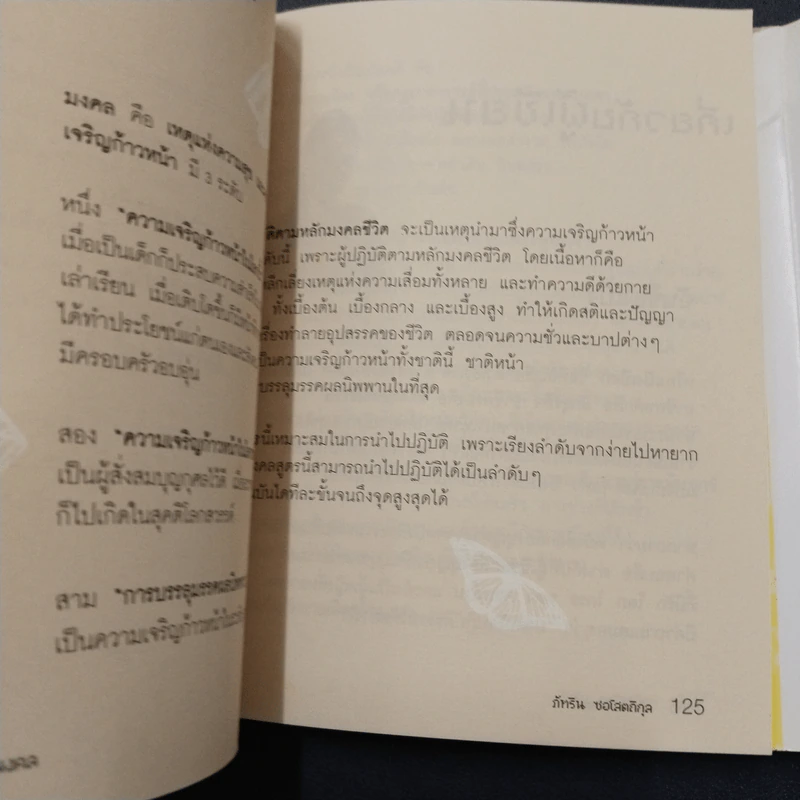 มงคล คือ เหตุแห่งความสุข
เจริญก้าวหน้า มี 3 ระดับ
หนึ่ง "ความเจริญก้าวหน้าใน
เมื่อเป็นเด็กก็ประสบความสำเร็จ
เล่าเรียน เมื่อเติบโตขึ้น
ได้ทำประโยชน์แก่ตนเองและ
มีครอบครัวอบอุ่น
สอง "ความเจริญก้าวหน้าใน
เป็นผู้สั่งสมบุญกุศลไว้ดี
ก็ไปเกิดในสุคติโลกสวรรค์
สาม "การบรรลุมรรคผลนิพพาน
เป็นความเจริญก้าวหน้า
มงคล
ติตามหลักมงคลชีวิต จะเป็นเหตุนำมาซึ่งความเจริญก้าวหน้า
ดับนี้ เพราะผู้ปฏิบัติตามหลักมงคลชีวิต โดยเนื้อหาก็คือ
ลีกเลี่ยงเหตุแห่งความเสื่อมทั้งหลาย และทำความดีด้วยกาย
ทั้งเบื้องต้น เบื้องกลาง และเบื้องสูง ทำให้เกิดสติและปัญญา
รื่องทำลายอุปสรรคของชีวิต ตลอดจนความชั่วและบาปต่างๆ
ป็นความเจริญก้าวหน้าทั้งชาตินี้ ชาติหน้า
บรรลุมรรคผลนิพพานในที่สุด
รนี้เหมาะสมในการนำไปปฏิบัติ เพราะเรียงลำดับจากง่ายไปหายาก
งคลสูตรนี้สามารถนำไปปฏิบัติได้เป็นลำดับๆ
นบันไดทีละขั้นจนถึงจุดสูงสุดได้
ภัทริน ซอโสตถิกุล 125